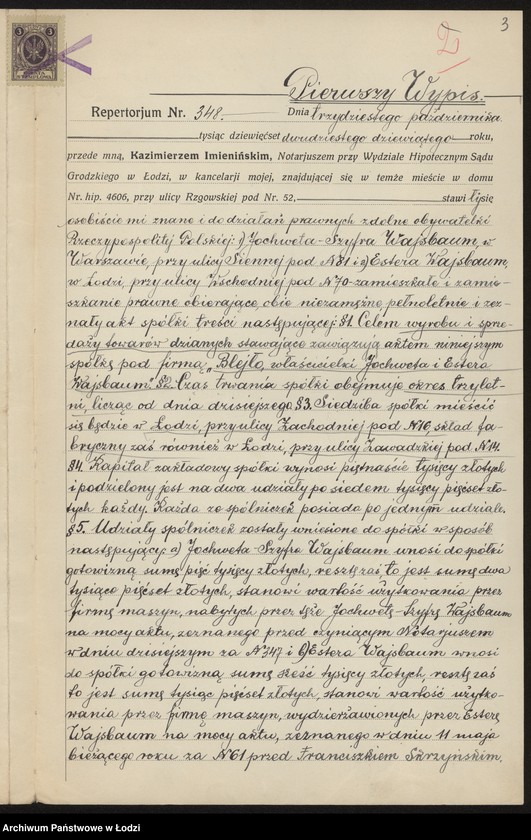 3
Pierwszy Wypis.
Repertorjum Nr. 348. Dnia trzydziestego października
tysiąc dziewięćset dwudziestego dziewiątego roku,
przede mną, Kazimierzem Imienińskim, Notarjuszem przy Wydziale Hipotecznym Sądu
Grodzkiego w Łodzi, w kancelarji mojej, znajdującej się w temże mieście w domu
Nr. hip. 4606, przy ulicy Rzgowskiej pod Nr. 52, stawiłyjsię
osobiście mi znane i do działań prawnych zdolne obywatelki
Rzeczypospolitej Polskiej: 1) Jochweta-Szyfra Wajsbaum, w
Warszawie, przy ulicy Siennej pod N81 i 2) Estera Wajsbaum,
w Łodzi, przy ulicy Wschodniej pod N70 - zamieszkałe i zamie-
szkanie prawne obierające, obie niezamężne, pełnoletnie i zez-
nały akt spółki treści następującej: §1. Celem wyrobu i sprze-
daży towarów dzianych stawające zawiązują aktem niniejszym
spółkę pod firmą: „Blejło, właścicielki Jochweta i Estera
Wajsbaum". §2. Czas trwania spółki obejmuje okres trzylet-
ni, licząc od dnia dzisiejszego §3. Siedziba spółki mieścić
się będzie w Łodzi, przy ulicy Zachodniej pod N16, skład fa-
bryczny zaś również w Łodzi, przy ulicy Zawadzkiej pod N14.
§4. Kapitał zakładowy spółki wynosi piętnaście tysięcy złotych
i podzielony jest na dwa udziały po siedem tysięcy pięćset zło-
tych każdy. Każda ze spólniczek posiada po jednym udziale.
§5. Udziały spólniczek zostały wniesione do spółki w sposób
następujący: a) Jochweta-Szyfra Wajsbaum wnosi do spółki
gotowizną sumę pięć tysięcy złotych, resztę zaś to jest sumę dwa
tysiące pięćset złotych, stanowi wartość użytkowania przez
firmę maszyn, nabytych przez tęże Jochwetę-Szyfrę Wajsbaum
na mocy aktu, zeznanego przed czyniącym Notarjuszem
w dniu dzisiejszym za N347 i b) Estera Wajsbaum wnosi
do spółki gotowizną sumę sześć tysięcy złotych, resztę zaś
to jest sumę tysiąc pięćset złotych, stanowi wartość użytko-
wania przez firmę maszyn, wydzierżawionych przez Esterę
Wajsbaum na mocy aktu, zeznanego w dniu 11 maja
bieżącego roku za N61 przed Franciszkiem Skrzyńskim,
Archiwum Państwowe w Łodzi